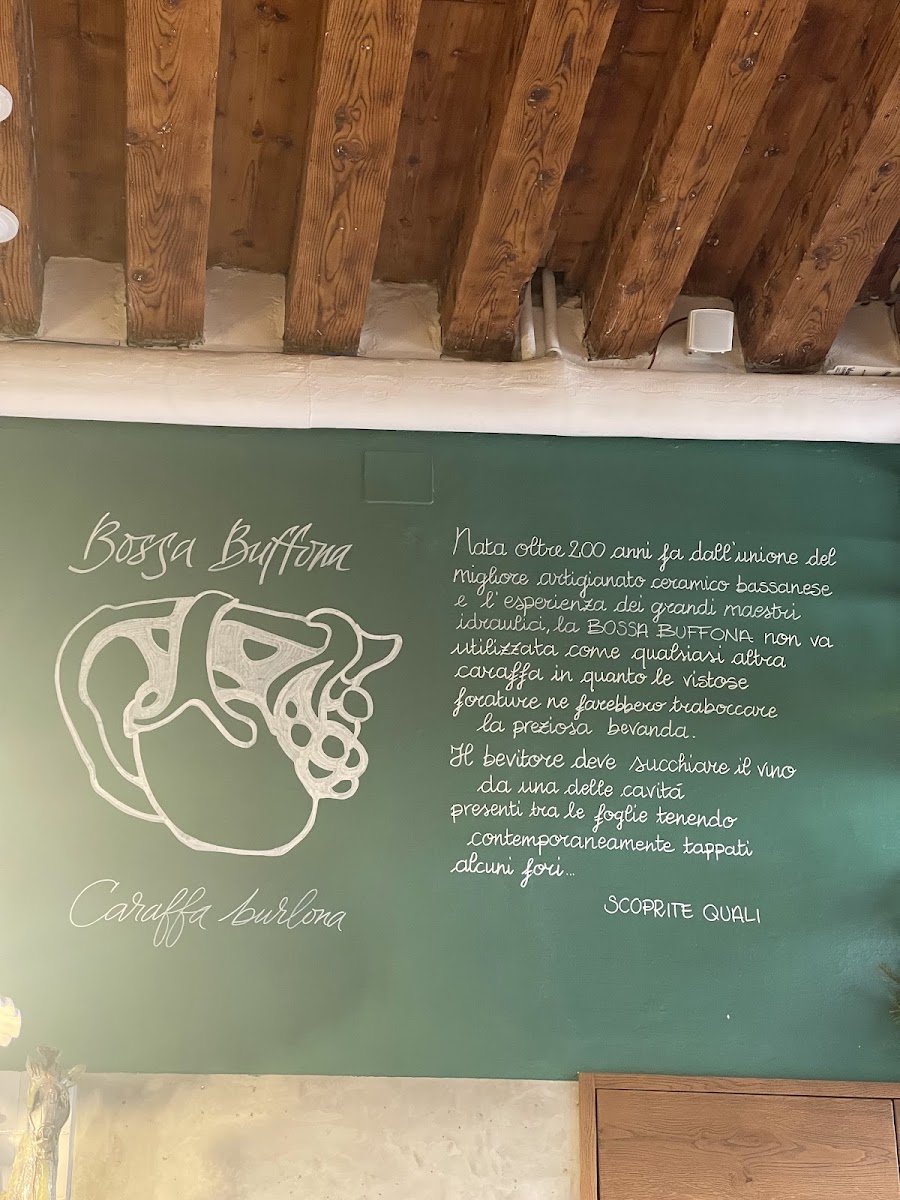 Bossa Buffona
Caraffa burlona
Nata oltre 200 anni fa dall'unione del
migliore artigianato ceramico bassanese
e l'esperienza dei grandi maestri
idraulici, la BOSSA BUFFONA non va
utilizzata come qualsiasi altra
caraffa in quanto le vistose
forature ne farebbero traboccare
la preziosa bevanda.
Il bevitore deve succhiare il vino
da una delle cavitá
presenti tra le foglie tenendo
contemporaneamente tappati
alcuni fori...
SCOPRITE QUALI